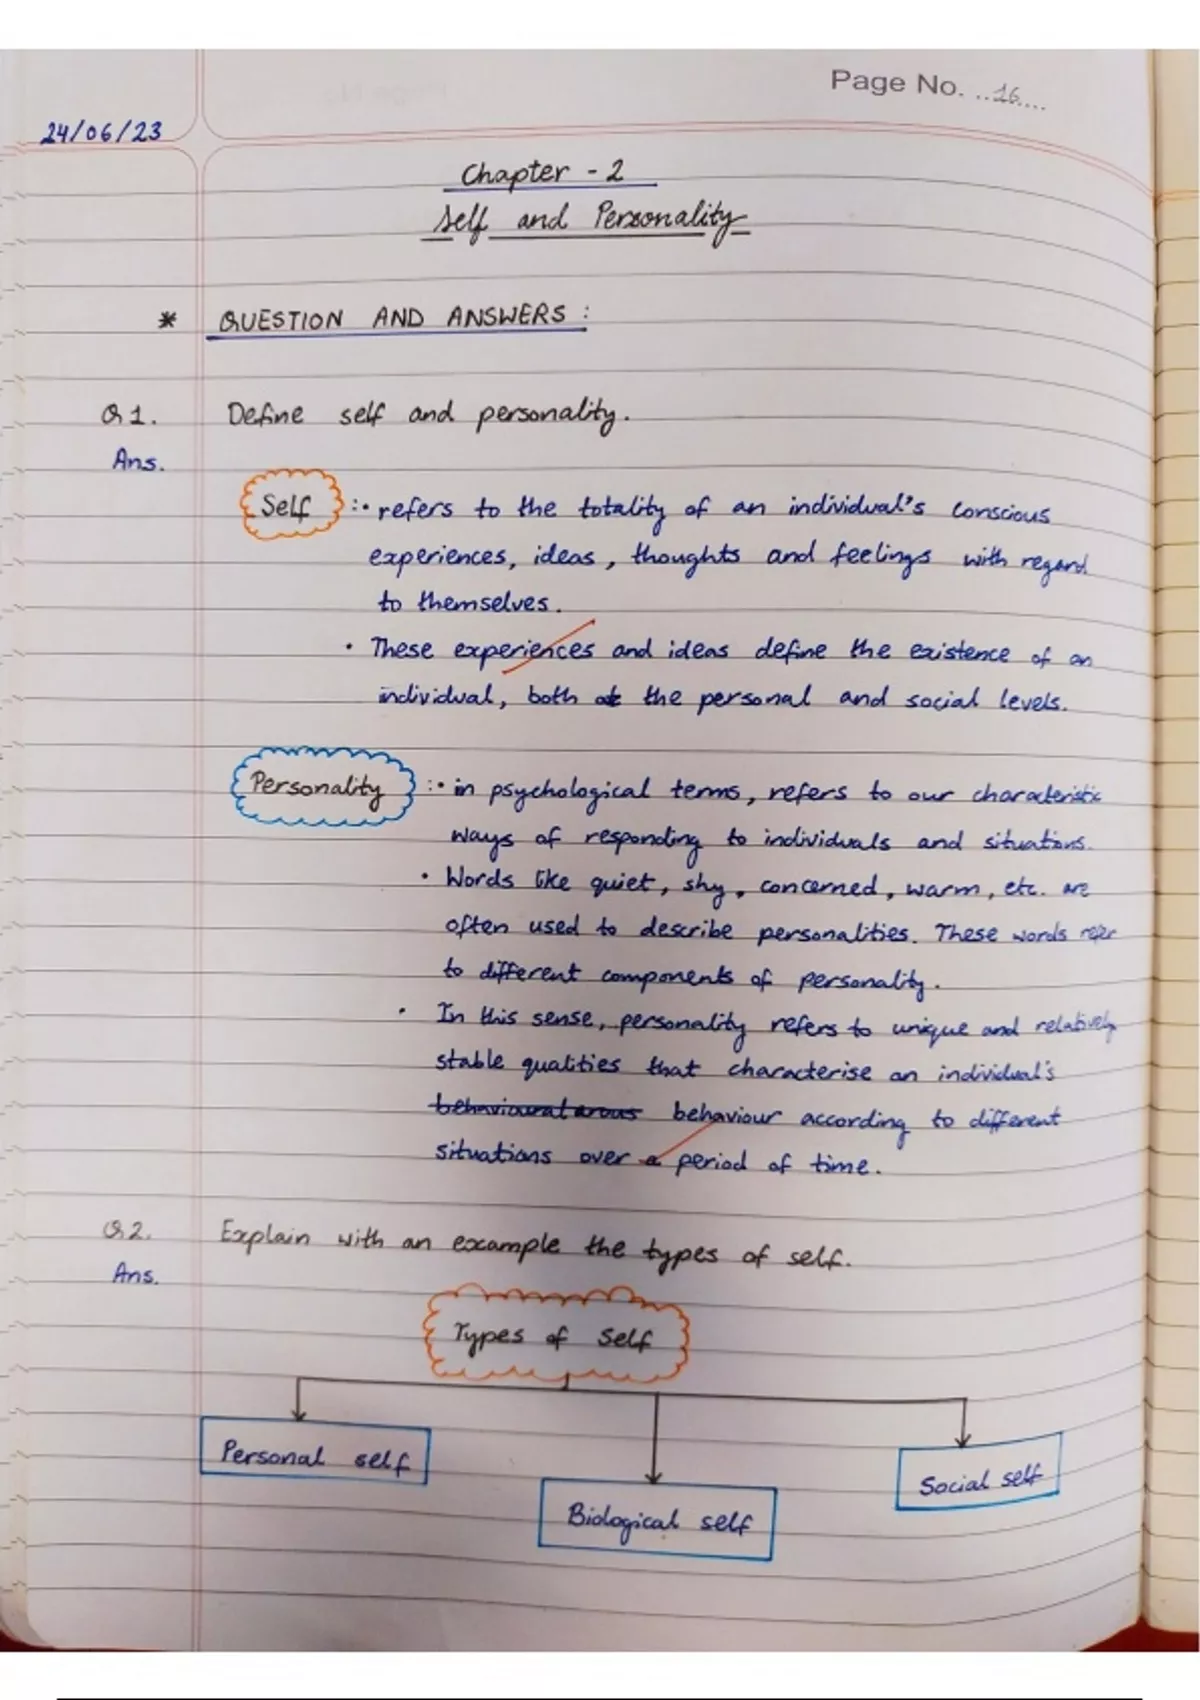 Page No. ..16....
24/06/23
Chapter - 2
Self and Personality
* QUESTION AND ANSWERS :
Q1. Define self and personality.
Ans.
Self :• refers to the totality of an individual's conscious
experiences, ideas, thoughts and feelings with regard
to themselves.
• These experiences and ideas define the existence of an
individual, both at the personal and social levels.
Personality :• in psychological terms, refers to our characteristic
ways of responding to individuals and situations.
• Words like quiet, shy, concerned, warm, etc. are
often used to describe personalities. These words refer
to different components of personality.
• In this sense, personality refers to unique and relatively
stable qualities that characterise an individual's
behaviour according to different
situations over a period of time.
Q2. Explain with an example the types of self.
Ans.
Types of Self
Personal self
Social self
Biological self